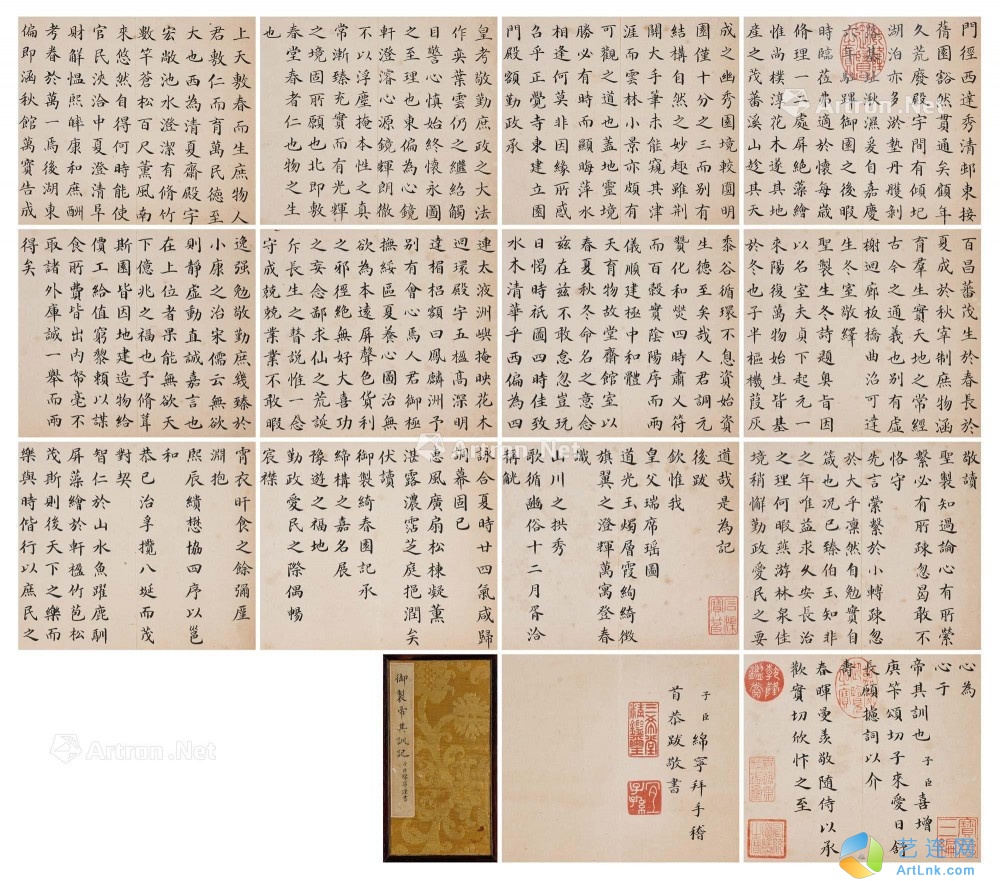 門徑西達秀清邨東接
蒨園豁然貫通矣顧年
久荒廢殿宇間有傾圮
湖泊亦多淤墊丹雘剝
落基址湫濕爰自嘉慶
六年駐蹕御園之後暇
時臨莅弗適於懷每歲
修理一二處屏絕藻繪
惟尚樸淳花木遂其地
産之茂蕃溪山趁其天
成之幽秀園境較圓明
園僅十分之三而別有
結構自然之妙趣雖荆
關大手筆未能窺其津
涯而雲林小景亦頗有
可觀之道也盖地靈境
勝必有時而顯晦萍水
相逢何莫非因緣所感
召乎正覺寺東建立園
門殿額勤政承
皇考敬勤庶政之大法
作奕葉雲仍之繼紹觸
目警心慎始終懷永圖
之至理也東偏為心鏡
軒澄濬心源鏡輝朗徹
不以浮塵掩本性之真
常漸臻充實而有光輝
之境固所願也北即敷
春堂春者仁也物之生
也
上天敷春而生庶物人
君敷仁而育萬民德至
大也西為清夏齋殿宇
宏敞池水澄潔有脩竹
數竿蒼松百尺薰風南
來悠然自得何時能使
官民浹洽中夏澄清阜
財解慍熙皥康和庶酬
考眷於萬一焉後湖東
偏即涵秋館萬寳告成
百昌蕃茂生於春長於
夏成於秋宰制庶物涵
育羣生實天地之常經
古今之通義也別有虛
榭迴廊板橋曲沼可達
生冬室敬繹
聖製生冬詩題奥旨因
以名室夫貞下起元一
來陽復後萬物皆生基
於冬也子半樞機葭灰
黍谷循環不息資始資
生德至矣哉人君調元
贊化和爕四時肅乂符
而百穀實陰陽序而兩
儀順建極中和體
天育物故堂齋館室以
春夏秋冬命名之意念
兹在兹不敢怠忽豈玩
日愒時祇圖四時佳致
水木清華乎西偏為四
連太液洲嶼掩映花木
迴環殿宇五楹高深明
達楣桯額曰鳳麟洲予
別有會心焉人君御極
撫綏區夏養心圖治無
欲為本遠屏聲色貨利
之邪徑絶無好大喜功
之妄念鄙求仙之荒誕
斥長生之瞽説惟一念
守成兢兢業業不敢暇
逸强勉敬勤庶幾臻於
小康之治宋儒云無欲
則靜虛動直誠嘉言也
在上位者果能無欲天
下億兆之福也予脩葺
斯園皆因地建造物給
價工給值窮黎賴以謀
食所費皆出内帑毫不
取諸外庫誠一舉而兩
得矣
敬讀
聖製知過論心有所縈
繫必有所疎忽曷敢不
恪守
先言縈繫於小轉疎忽
於大乎凛然自勉實自
箴也况已臻伯玉知非
之年唯益求久安長治
之理何暇燕游林泉佳
境稍懈勤政愛民之要
道哉是為記
後跋
欽惟我
皇父瑞席瑶圖
道光玉燭層霞絢綺微
旗翼之澄輝萬寓登春
識
山川之拱秀
歌循豳俗十二月胥洽
稱觥
詠合夏時廿四氣咸歸
洞幕固已
惠風廣扇松棟凝薰
湛露濃霑芝庭挹潤矣
伏讀
御製綺春園記承
締構之嘉名展
豫遊之福地
勤政愛民之際偶暢
宸襟
宵衣旰食之餘彌廑
淵抱
熙辰績懋協四序以鬯
和
恭已治孚攬八埏而茂
對契
智仁於山水魚躍鹿馴
屏藻繪於軒楹竹苞松
茂斯則後天下之樂而
樂與時偕行以庶民之
心為
心于
帝其訓也子臣喜增
庚筭頌切子來愛日舒
長願攄詞以介
壽
春暉曼羨敬隨侍以承
歡實切欣忭之至
子臣綿寧拜手稽
首恭跋敬書
三希堂精鑑璽
宜子孫
御製帝其訓記 子臣綿寧謹書
Artron.Net
艺连网
ArtLnk.com